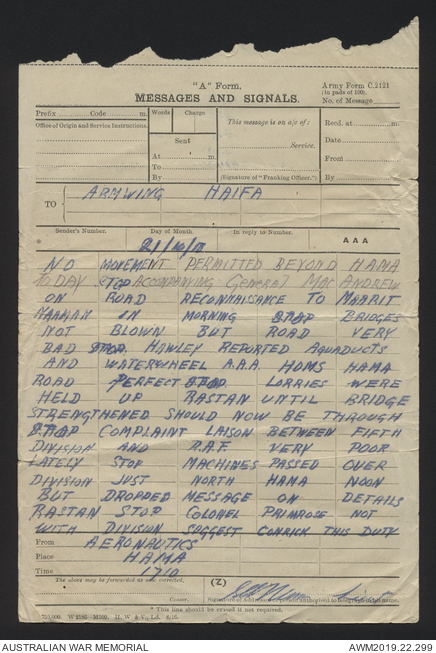 "A" Form.
Army Form C.2121
(In pads of 100).
MESSAGES AND SIGNALS.
No. of Message
Prefix Code m.
Words Charge
This message is on a/c of :
Recd. at m.
Office of Origin and Service Instructions.
Sent
Date
Service.
At m.
From
To
By
(Signature of "Franking Officer.")
By
TO ARMWING HAIFA
Sender's Number. Day of Month. In reply to Number. AAA
NO MOVEMENT PERMITTED BEYOND HAMA
TODAY STOP ACCOMPANYING GENERAL MAC ANDREW
ON ROAD RECONNAISANCE TO MAARIT
NAAMAN IN MORNING STOP BRIDGES
NOT BLOWN BUT ROAD VERY
BAD STOP. HAWLEY REPORTED AQUADUCTS
AND WATERWHEEL A.A.A. HOMS HAMA
ROAD PERFECT STOP. LORRIES WERE
HELD UP RASTAN UNTIL BRIDGE
STRENGTHENED SHOULD NOW BE THROUGH
STOP COMPLAINT LAISON BETWEEN FIFTH
DIVISION AND R.A.F. VERY POOR
LATELY STOP MACHINES PASSED OVER
DIVISION JUST NORTH HAMA NOON
BUT DROPPED MESSAGE ON DETAILS
RASTAN STOP COLONEL PRIMROSE NOT
WITH DIVISION SUGGEST CONRICK THIS DUTY
From AERONAUTICS
Place HAMA
Time 1710
The above may be forwarded as now corrected. (Z)
Censor. Signature of Addressor or person authorised to telegraph in his name.
* This line should be erased if not required.
AUSTRALIAN WAR MEMORIAL
AWM2019.22.299